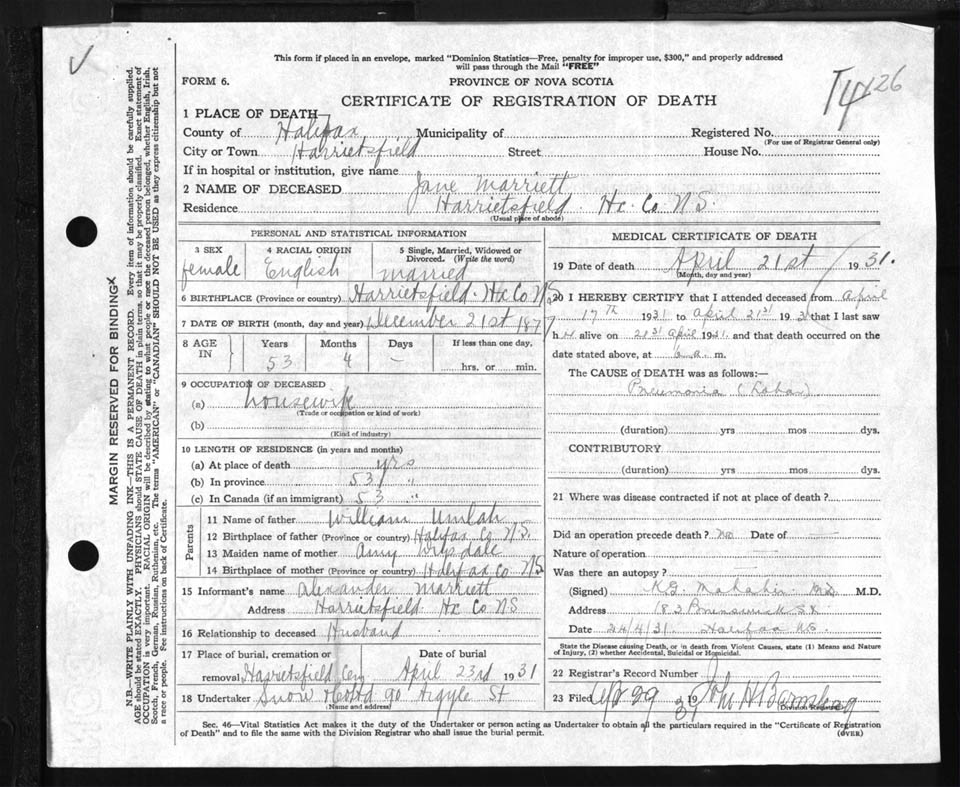 This form if placed in an envelope, marked "Dominion Statistics—Free, penalty for improper use, $300," and properly addressed
will pass through the Mail "FREE"
FORM 6.
PROVINCE OF NOVA SCOTIA
CERTIFICATE OF REGISTRATION OF DEATH
1 PLACE OF DEATH
County of Halifax Municipality of Registered No.
(For use of Registrar General only)
City or Town Harrietsfield Street House No.
If in hospital or institution, give name
2 NAME OF DECEASED Jane Marriett
Residence Harrietsfield. Hx. Co. N.S.
(Usual place of abode)
PERSONAL AND STATISTICAL INFORMATION
3 SEX 4 RACIAL ORIGIN 5 Single, Married, Widowed or
Divorced. (Write the word)
female English married
6 BIRTHPLACE (Province or country) Harrietsfield. Hx Co N.S.
7 DATE OF BIRTH (month, day and year) December 21st 1877
8 AGE IN Years Months Days If less than one day,
53 4 – hrs. or min.
9 OCCUPATION OF DECEASED
(a) housewife
(Trade or occupation or kind of work)
(b)
(Kind of industry)
10 LENGTH OF RESIDENCE (in years and months)
(a) At place of death yrs
(b) In province 53 "
(c) In Canada (if an immigrant) 53 "
Parents
11 Name of father William Umlah
12 Birthplace of father (Province or country) Halifax Co. N.S.
13 Maiden name of mother Amy
14 Birthplace of mother (Province or country) Halifax Co N.S
15 Informant's name Alexander Marriett
Address Harrietsfield Hx Co NS
16 Relationship to deceased Husband
17 Place of burial, cremation or Date of burial
removal Harrietsfield Cem April 23rd 1931
18 Undertaker Snow & Co Ltd 90 Argyle St
(Name and address)
MEDICAL CERTIFICATE OF DEATH
19 Date of death April 21st 1931.
(Month, day and year)
20 I HEREBY CERTIFY that I attended deceased from April
17th 1931 to April 21st 193 that I last saw
h alive on 21st April 1931. and that death occurred on the
date stated above, at a. m.
The CAUSE of DEATH was as follows:—
Pneumonia (Lobar)
(duration) yrs mos dys.
CONTRIBUTORY
(duration) yrs mos dys.
21 Where was disease contracted if not at place of death?
Did an operation precede death? No Date of —
Nature of operation —
Was there an autopsy? —
(Signed) M.D.
Address 182 Brunswick St
Date 24/4/31. Halifax NS
State the Disease causing Death, or in death from Violent Causes, state (1) Means and Nature
of Injury, (2) whether Accidental, Suicidal or Homicidal.
22 Registrar's Record Number
23 Filed 29 1931 John H
Division Registrar
Sec. 46—Vital Statistics Act makes it the duty of the Undertaker or person acting as Undertaker to obtain all the particulars required in the "Certificate of Registration
of Death" and to file the same with the Division Registrar who shall issue the burial permit.
(OVER)
MARGIN RESERVED FOR BINDING
N.B.—WRITE PLAINLY WITH UNFADING INK—THIS IS A PERMANENT RECORD. Every item of information should be carefully supplied.
AGE should be stated EXACTLY. PHYSICIANS should STATE CAUSE OF DEATH in plain terms, so that it may be properly classified. Exact statement of
OCCUPATION is very important. RACIAL ORIGIN will be described by stating to what people or race the deceased person belonged, whether English, Irish,
Scotch, French, German, Russian, Ruthenian, etc. The terms "AMERICAN" or "CANADIAN" SHOULD NOT BE USED as they express citizenship but not
a race or people. See instructions on back of Certificate.